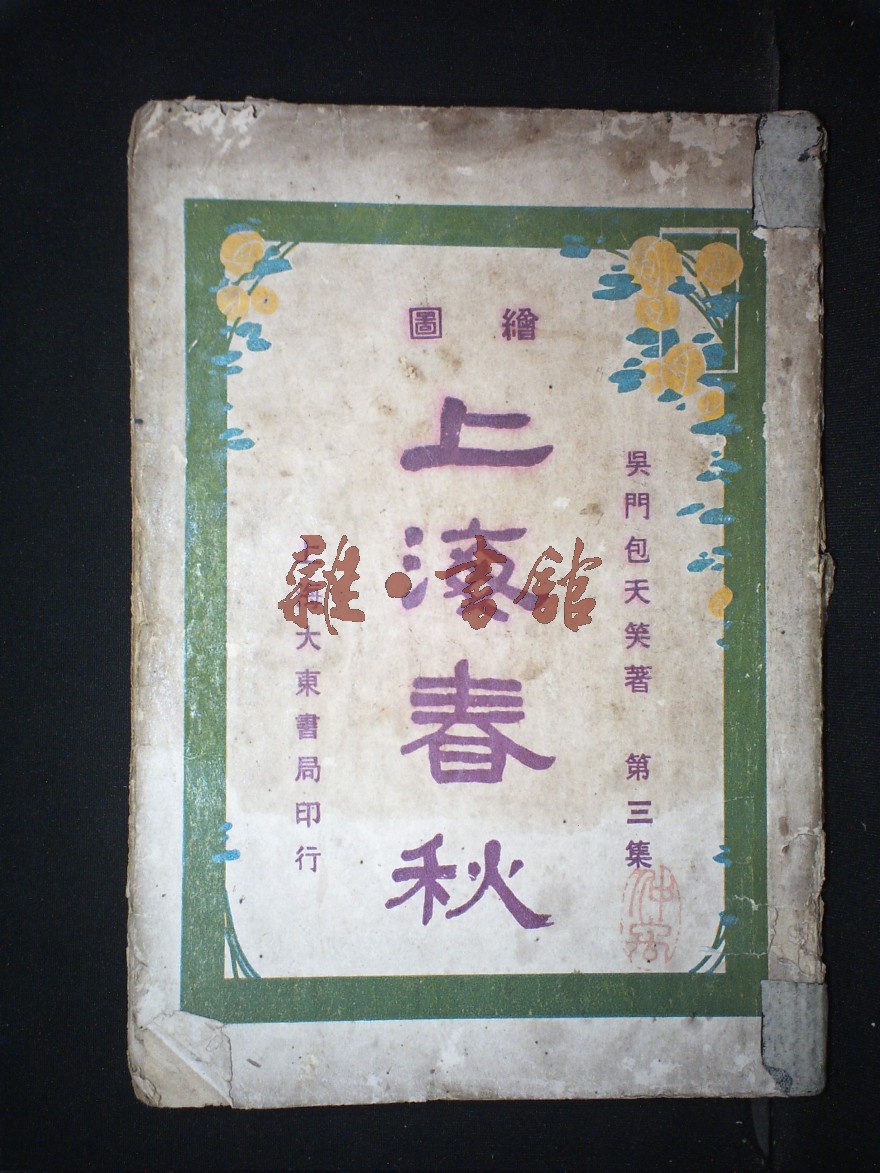 繪圖
吳門包天笑著 第三集
上海春秋
上海大東書局印行
雜·書館